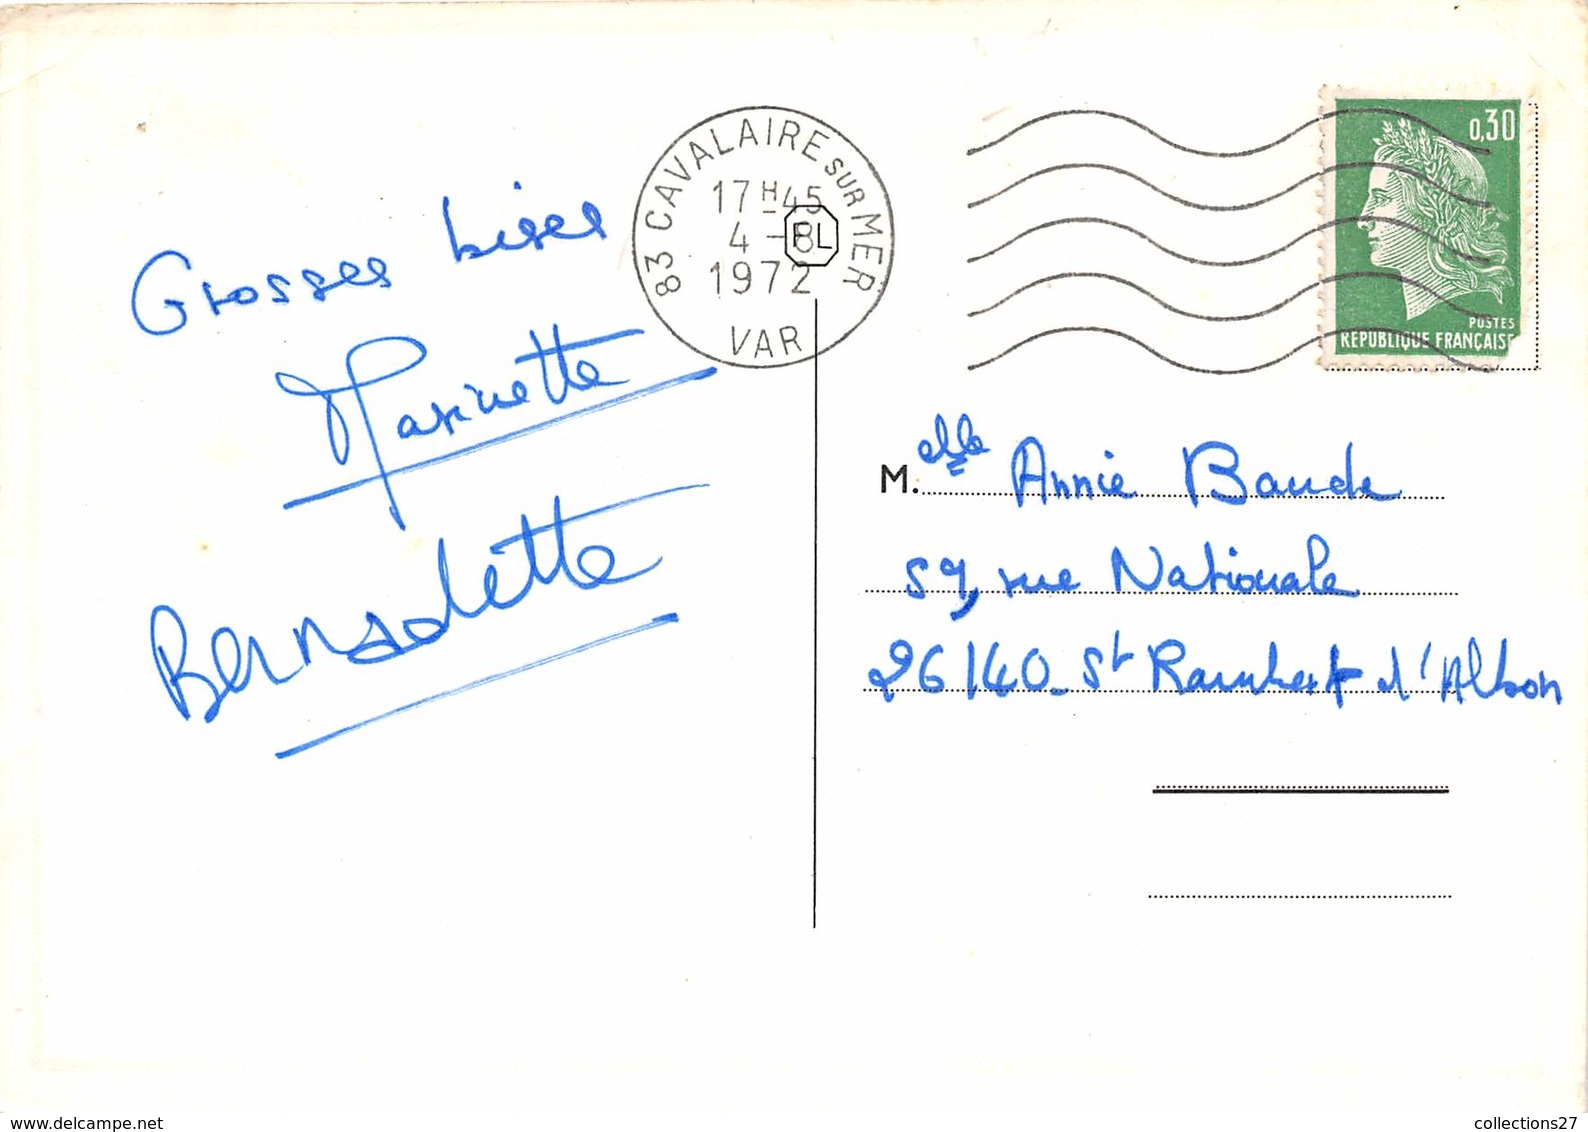 83 CAVALAIRE SUR MER
17H45
4 -8
1972
VAR
FL
0,30
POSTES
REPUBLIQUE FRANÇAISE
Grosses bises
Marinette
Bernadette
M.elle Annie Baude
59, rue Nationale
26140 - St Rambert d'Albon
www.delcampe.net
collections27